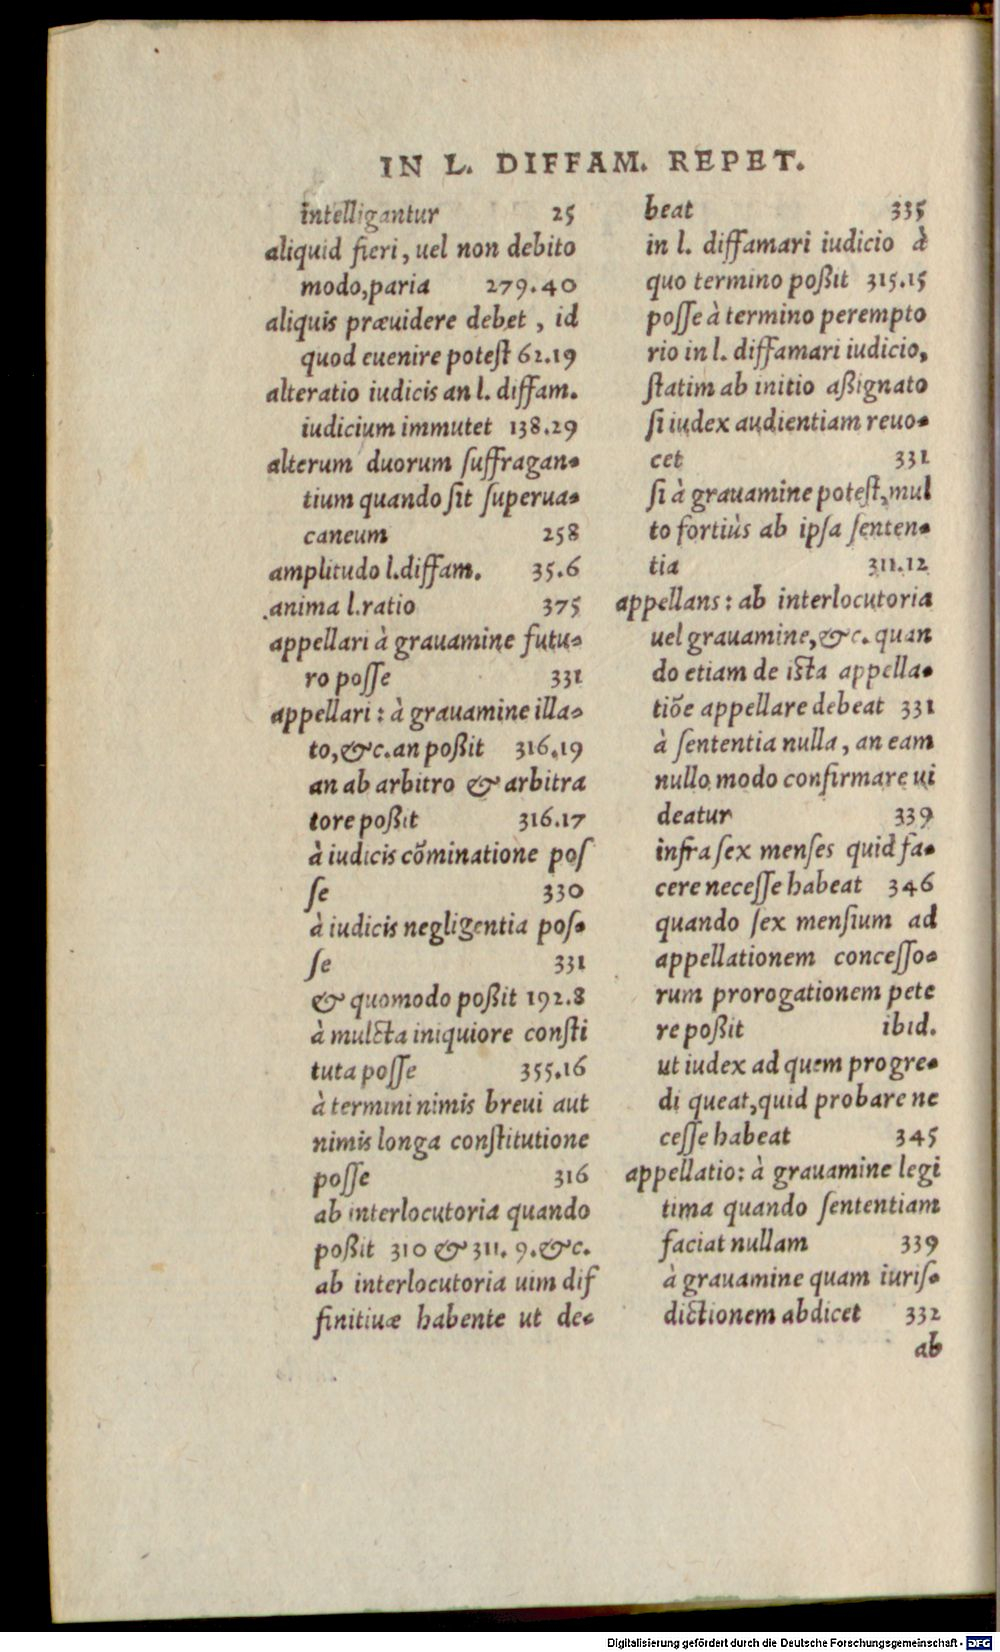 IN L. DIFFAM. REPET.
intelligantur 25
aliquid fieri, uel non debito
modo, paria 279.40
aliquis præuidere debet, id
quod euenire potest 62.19
alteratio iudicis an l. diffam.
iudicium immutet 138.29
alterum duorum suffragan-
tium quando sit superua-
caneum 258
amplitudo l. diffam. 35.6
anima l. ratio 375
appellari à grauamine futu-
ro posse 331
appellari: à grauamine illa-
to, &c. an poßit 316.19
an ab arbitro & arbitra
tore poßit 316.17
à iudicis cõminatione pos
se 330
à iudicis negligentia pos-
se 331
& quomodo poßit 192.8
à mulcta iniquiore consti
tuta posse 355.16
à termini nimis breui aut
nimis longa constitutione
posse 316
ab interlocutoria quando
poßit 310 & 311. 9. &c.
ab interlocutoria uim dif
finitiuæ habente ut de-
beat 335
in l. diffamari iudicio à
quo termino poßit 315.15
posse à termino perempto
rio in l. diffamari iudicio,
statim ab initio aßignato
si iudex audientiam reuo-
cet 331
si à grauamine potest, mul
to fortiùs ab ipsa senten-
tia 311.12
appellans: ab interlocutoria
uel grauamine, &c. quan
do etiam de ista appella-
tiõe appellare debeat 331
à sententia nulla, an eam
nullo modo confirmare ui
deatur 339
infra sex menses quid fa-
cere necesse habeat 346
quando sex mensium ad
appellationem concesso-
rum prorogationem pete
re poßit ibid.
ut iudex ad quem progre-
di queat, quid probare ne
cesse habeat 345
appellatio: à grauamine legi
tima quando sententiam
faciat nullam 339
à grauamine quam iuris-
dictionem abdicet 332
ab
Digitalisierung gefördert durch die Deutsche Forschungsgemeinschaft - DFG